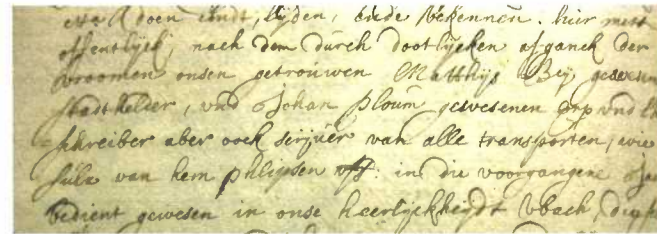 doen condt, lijden, ende bekennen. hier mett
offentlyck, nach dem durch dootlycken afganck der
vroomen onsen getrouwen Matthijs Beij gewesen
stadthelder, vnd Johan Ploum gewesenen vnd
schreiber aber oock van alle transporten, wie
van hem phlipsen in die voorgangene
bedient gewesen in onse heerlyckheydt vbach,